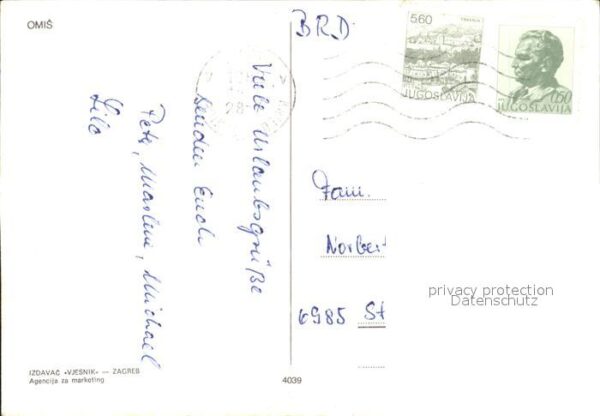 OMIŠ
Viele Urlaubsgrüße
senden Euch
Peter, Marlene, Michael
Silo
IZDAVAČ «VJESNIK» — ZAGREB
Agencija za marketing
4039
BRD
5.60
JUGOSLAVIJA
0.50
JUGOSLAVIJA
Fam.
Norbert
6985 St
privacy protection
Datenschutz